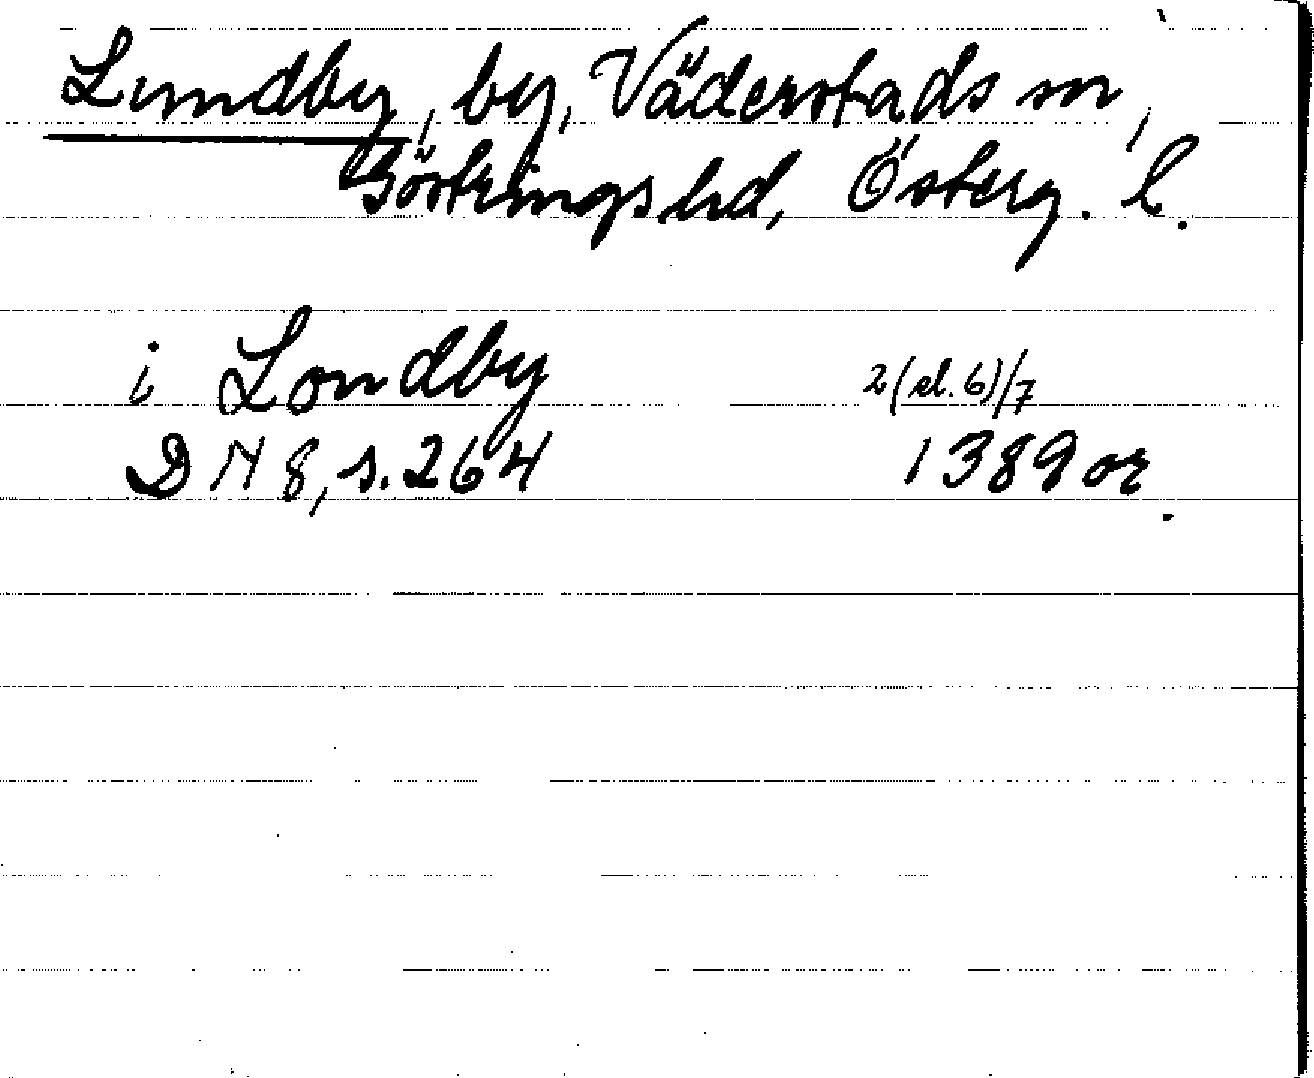 Lundby, by, Väderstads sn,
Göstringshd, Österg. l.
i Londby 2(el. 6)/7
DN 8, s. 264 1389 or.